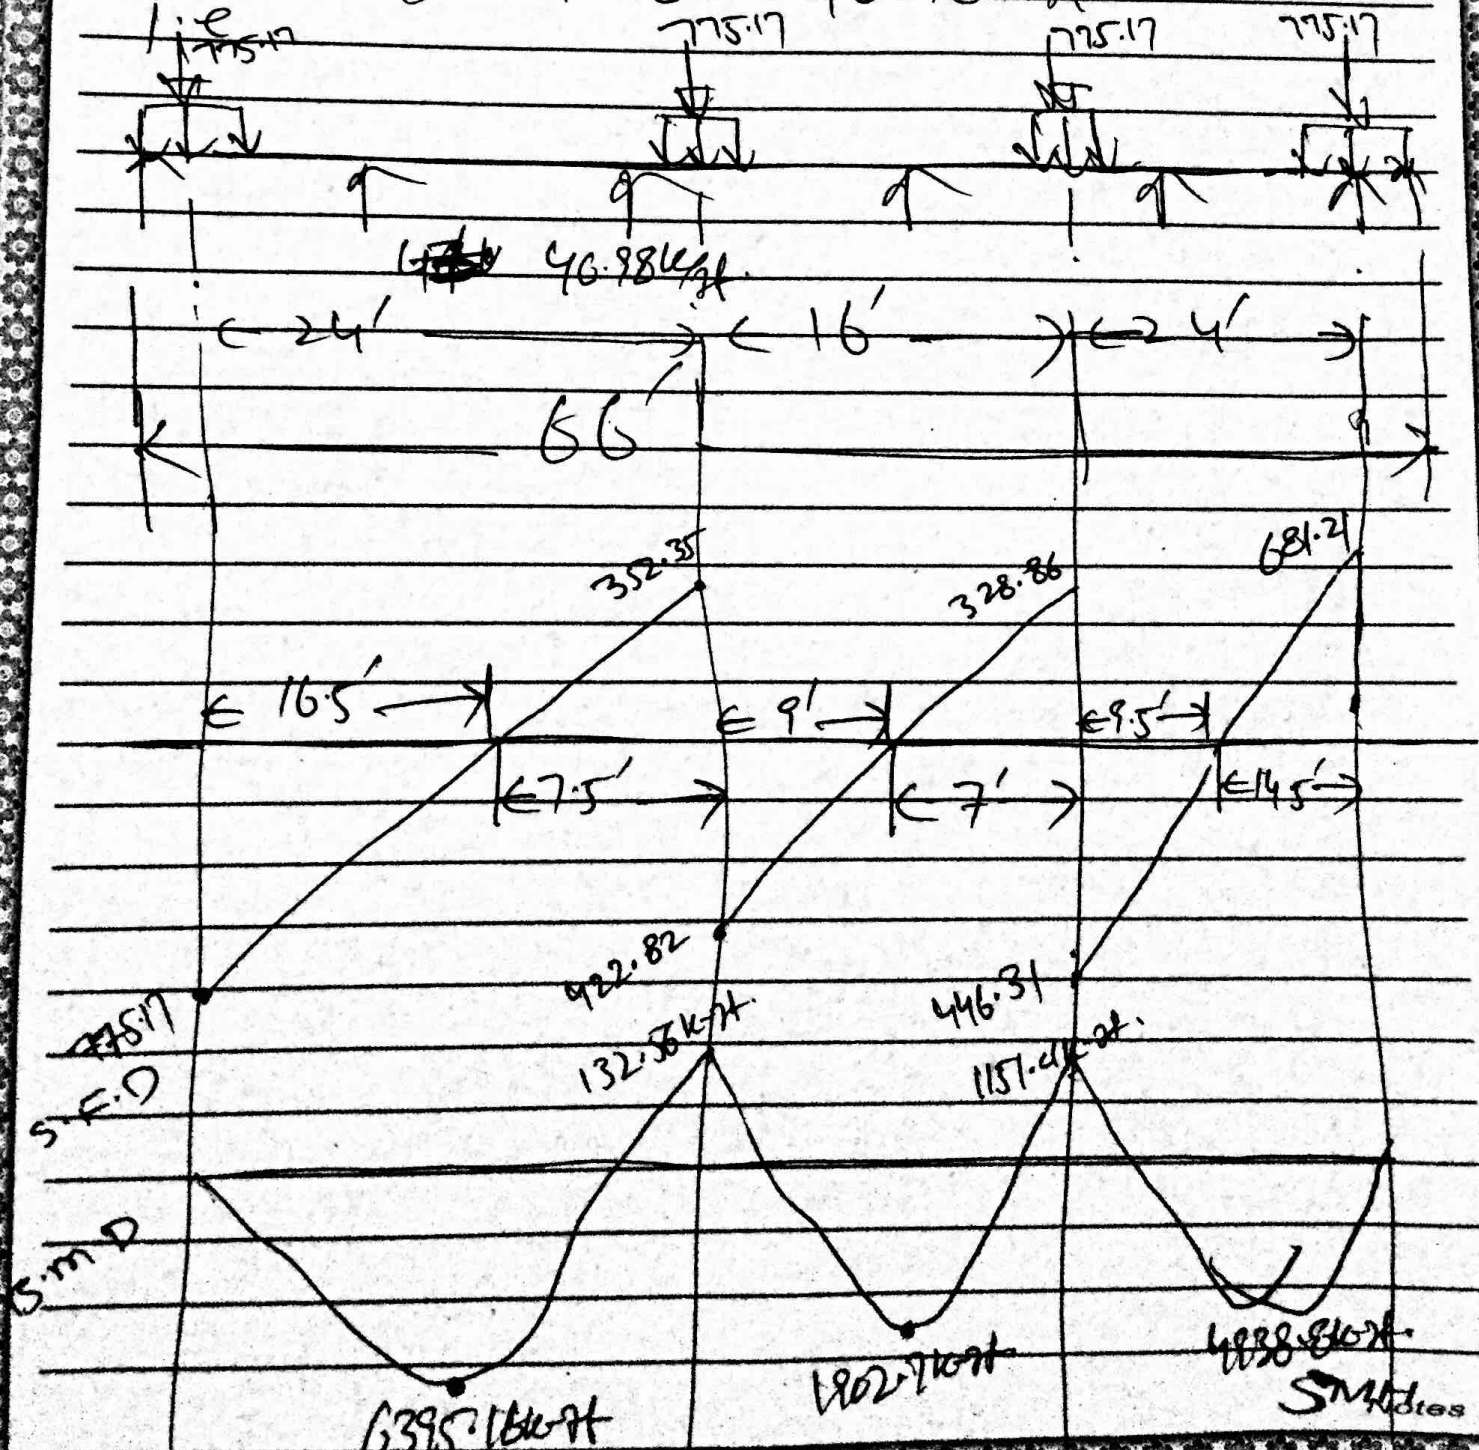 775.17 775.17 775.17 775.17
46.98k/ft.
24' 16' 24'
66'
352.35 328.86 681.21
16.5' 9' 9.5'
7.5' 7' 14.5'
775.17 422.82 446.31
S.F.D 132.56k-ft. 1151.4k-ft.
B.M.D
6395.16k-ft 1902.7k-ft 4838.8k-ft.